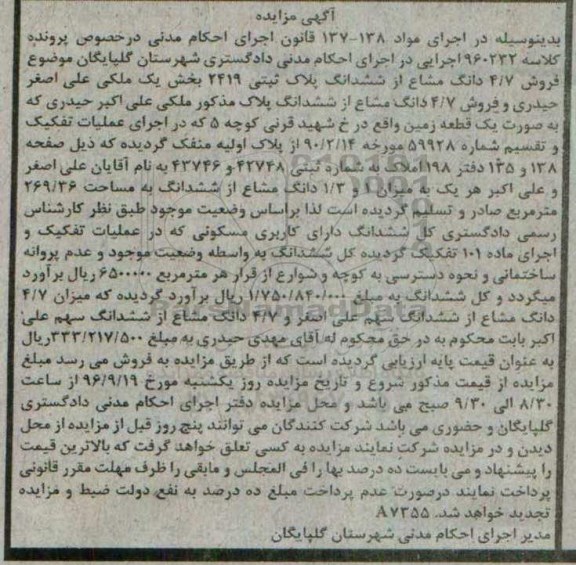 آگهی مزایده
بدینوسیله در اجرای مواد ۱۳۸-۱۳۷ قانون اجرای احکام مدنی درخصوص پرونده
کلاسه ۹۶۰۲۳۲ اجرایی در اجرای احکام مدنی دادگستری شهرستان گلپایگان موضوع
فروش ۴/۷ دانگ مشاع از ششدانگ پلاک ثبتی ۲۴۱۹ بخش یک ملکی علی اصغر
حیدری و فروش ۴/۷ دانگ مشاع از ششدانگ پلاک مذکور ملکی علی اکبر حیدری که
به صورت یک قطعه زمین واقع در خ شهید قرنی کوچه ۵ که در اجرای عملیات تفکیک
و تقسیم شماره ۵۹۹۲۸ مورخه ۹۰/۲/۱۴ از پلاک اولیه منفک گردیده که ذیل صفحه
۱۳۸ و ۱۳۵ دفتر ۱۹۸ املاک به شماره ثبتی ۴۲۷۴۸ و ۴۳۷۴۶ به نام آقایان علی اصغر
و علی اکبر هر یک به میزان ۱/۳ دانگ مشاع از ششدانگ به مساحت ۲۶۹/۳۶
مترمربع صادر و تسلیم گردیده است لذا براساس وضعیت موجود طبق نظر کارشناس
رسمی دادگستری کل ششدانگ دارای کاربری مسکونی که در عملیات تفکیک و
اجرای ماده ۱۰۱ تفکیک گردیده کل ششدانگ به واسطه وضعیت موجود و عدم پروانه
ساختمانی و نحوه دسترسی به کوچه و شوارع از قرار هر مترمربع ۶۵۰۰۰۰۰ ریال برآورد
میگردد و کل ششدانگ به مبلغ ۱/۷۵۰/۸۴۰/۰۰۰ ریال برآورد گردیده که میزان ۴/۷
دانگ مشاع از ششدانگ سهم علی اصغر و ۴/۷ دانگ مشاع از ششدانگ سهم علی
اکبر بابت محکوم به در حق محکوم له آقای مهدی حیدری به مبلغ ۳۳۳/۲۱۷/۵۰۰ ریال
به عنوان قیمت پایه ارزیابی گردیده است که از طریق مزایده به فروش می رسد مبلغ
مزایده از قیمت مذکور شروع و تاریخ مزایده روز یکشنبه مورخ ۹۶/۹/۱۹ از ساعت
۸/۳۰ الی ۹/۳۰ صبح می باشد و محل مزایده دفتر اجرای احکام مدنی دادگستری
گلپایگان و حضوری می باشد شرکت کنندگان می توانند پنج روز قبل از مزایده از محل
دیدن و در مزایده شرکت نمایند مزایده به کسی تعلق خواهد گرفت که بالاترین قیمت
را پیشنهاد و می بایست ده درصد بها را فی المجلس و مابقی را ظرف مهلت مقرر قانونی
پرداخت نمایند درصورت عدم پرداخت مبلغ ده درصد به نفع دولت ضبط و مزایده
تجدید خواهد شد. ۸۷۳۵۵ A
مدیر اجرای احکام مدنی شهرستان گلپایگان